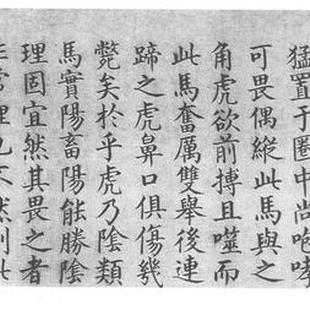 猛置于圈中尚咆哮
可畏偶縱此馬與之
角虎欲前搏且噬而
此馬奮厲雙舉後連
蹄之虎鼻口俱傷幾
斃矣於乎虎乃陰類
馬實陽畜陽能勝陰
理固宜然其畏之者
非常理也不然則此